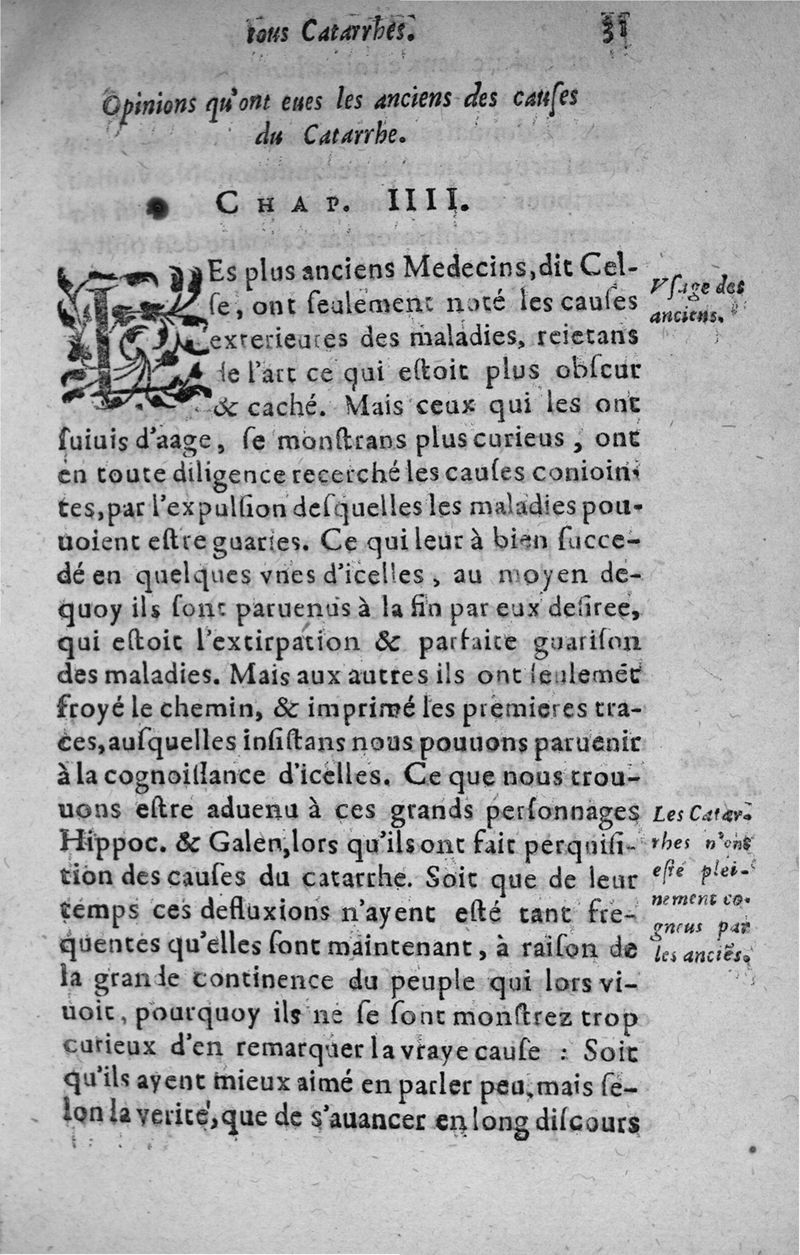 tous Catarrhes. 31
Opinions qu'ont eues les anciens des cauſes
du Catarrhe.
CHAP. IIII.
LEs plus anciens Medecins, dit Cel-
ſe, ont ſeulement noté les cauſes
exterieures des maladies, reietans
de l'art ce qui eſtoit plus obſcur
& caché. Mais ceux qui les ont
ſuiuis d'aage, ſe monſtrans plus curieus, ont
en toute diligence recerché les cauſes conioin-
tes, par l'expulſion deſquelles les maladies pou-
uoient eſtre guaries. Ce qui leur à bien ſucce-
dé en quelques vnes d'icelles, au moyen de-
quoy ils ſont paruenus à la fin par eux deſiree,
qui eſtoit l'extirpation & parfaite guariſon
des maladies. Mais aux autres ils ont ſeulemẽt
froyé le chemin, & imprimé les premieres tra-
ces, auſquelles inſiſtans nous pouuons paruenir
à la cognoiſſance d'icelles. Ce que nous trou-
uons eſtre aduenu à ces grands perſonnages
Hippoc. & Galen, lors qu'ils ont fait perquiſi-
tion des cauſes du catarrhe. Soit que de leur
temps ces defluxions n'ayent eſté tant fre-
quentes qu'elles ſont maintenant, à raiſon de
la grande continence du peuple qui lors vi-
uoit, pourquoy ils ne ſe ſont monſtrez trop
curieux d'en remarquer la vraye cauſe : Soit
qu'ils ayent mieux aimé en parler peu, mais ſe-
lon la verité, que de s'auancer en long diſcours
Vſage des
anciens.
Les Catar-
rhes n'ont
eſté plei-
nement co-
gneus par
les anciẽs.